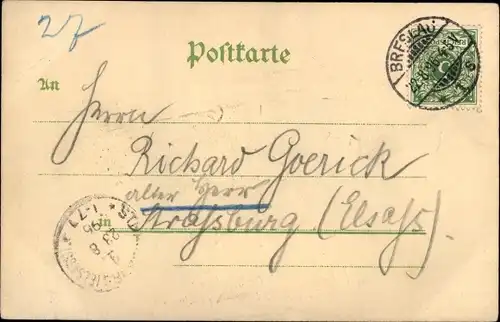 27
Postkarte
BRESLAU
An
Herrn
Richard Goerick
alter Herr
in Strassburg (Elsass)